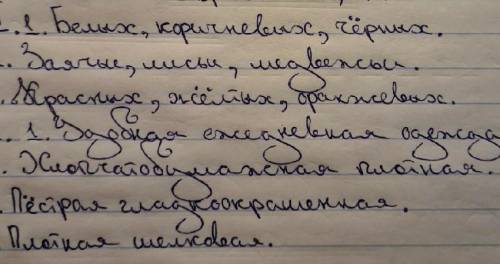 1. 1. Белых, коричневых, чёрных.
. Заячьи, лисьи, медвежьи.
. Красных, жёлтых, оранжевых.
. 1. Удобная ежедневная одежда
. Хлопчатобумажная плотная.
. Пёстрая гладкоокрашенная.
Плотная шелковая.